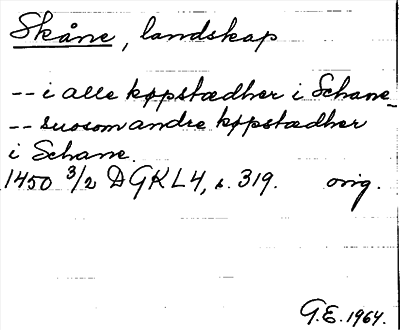 Skåne, landskap
-- i alle køpstædher i Schane_
-- suosom andre køpstædher
i Schane.
1450 3/2 DGKL4, s. 319. orig.
G.E. 1964.